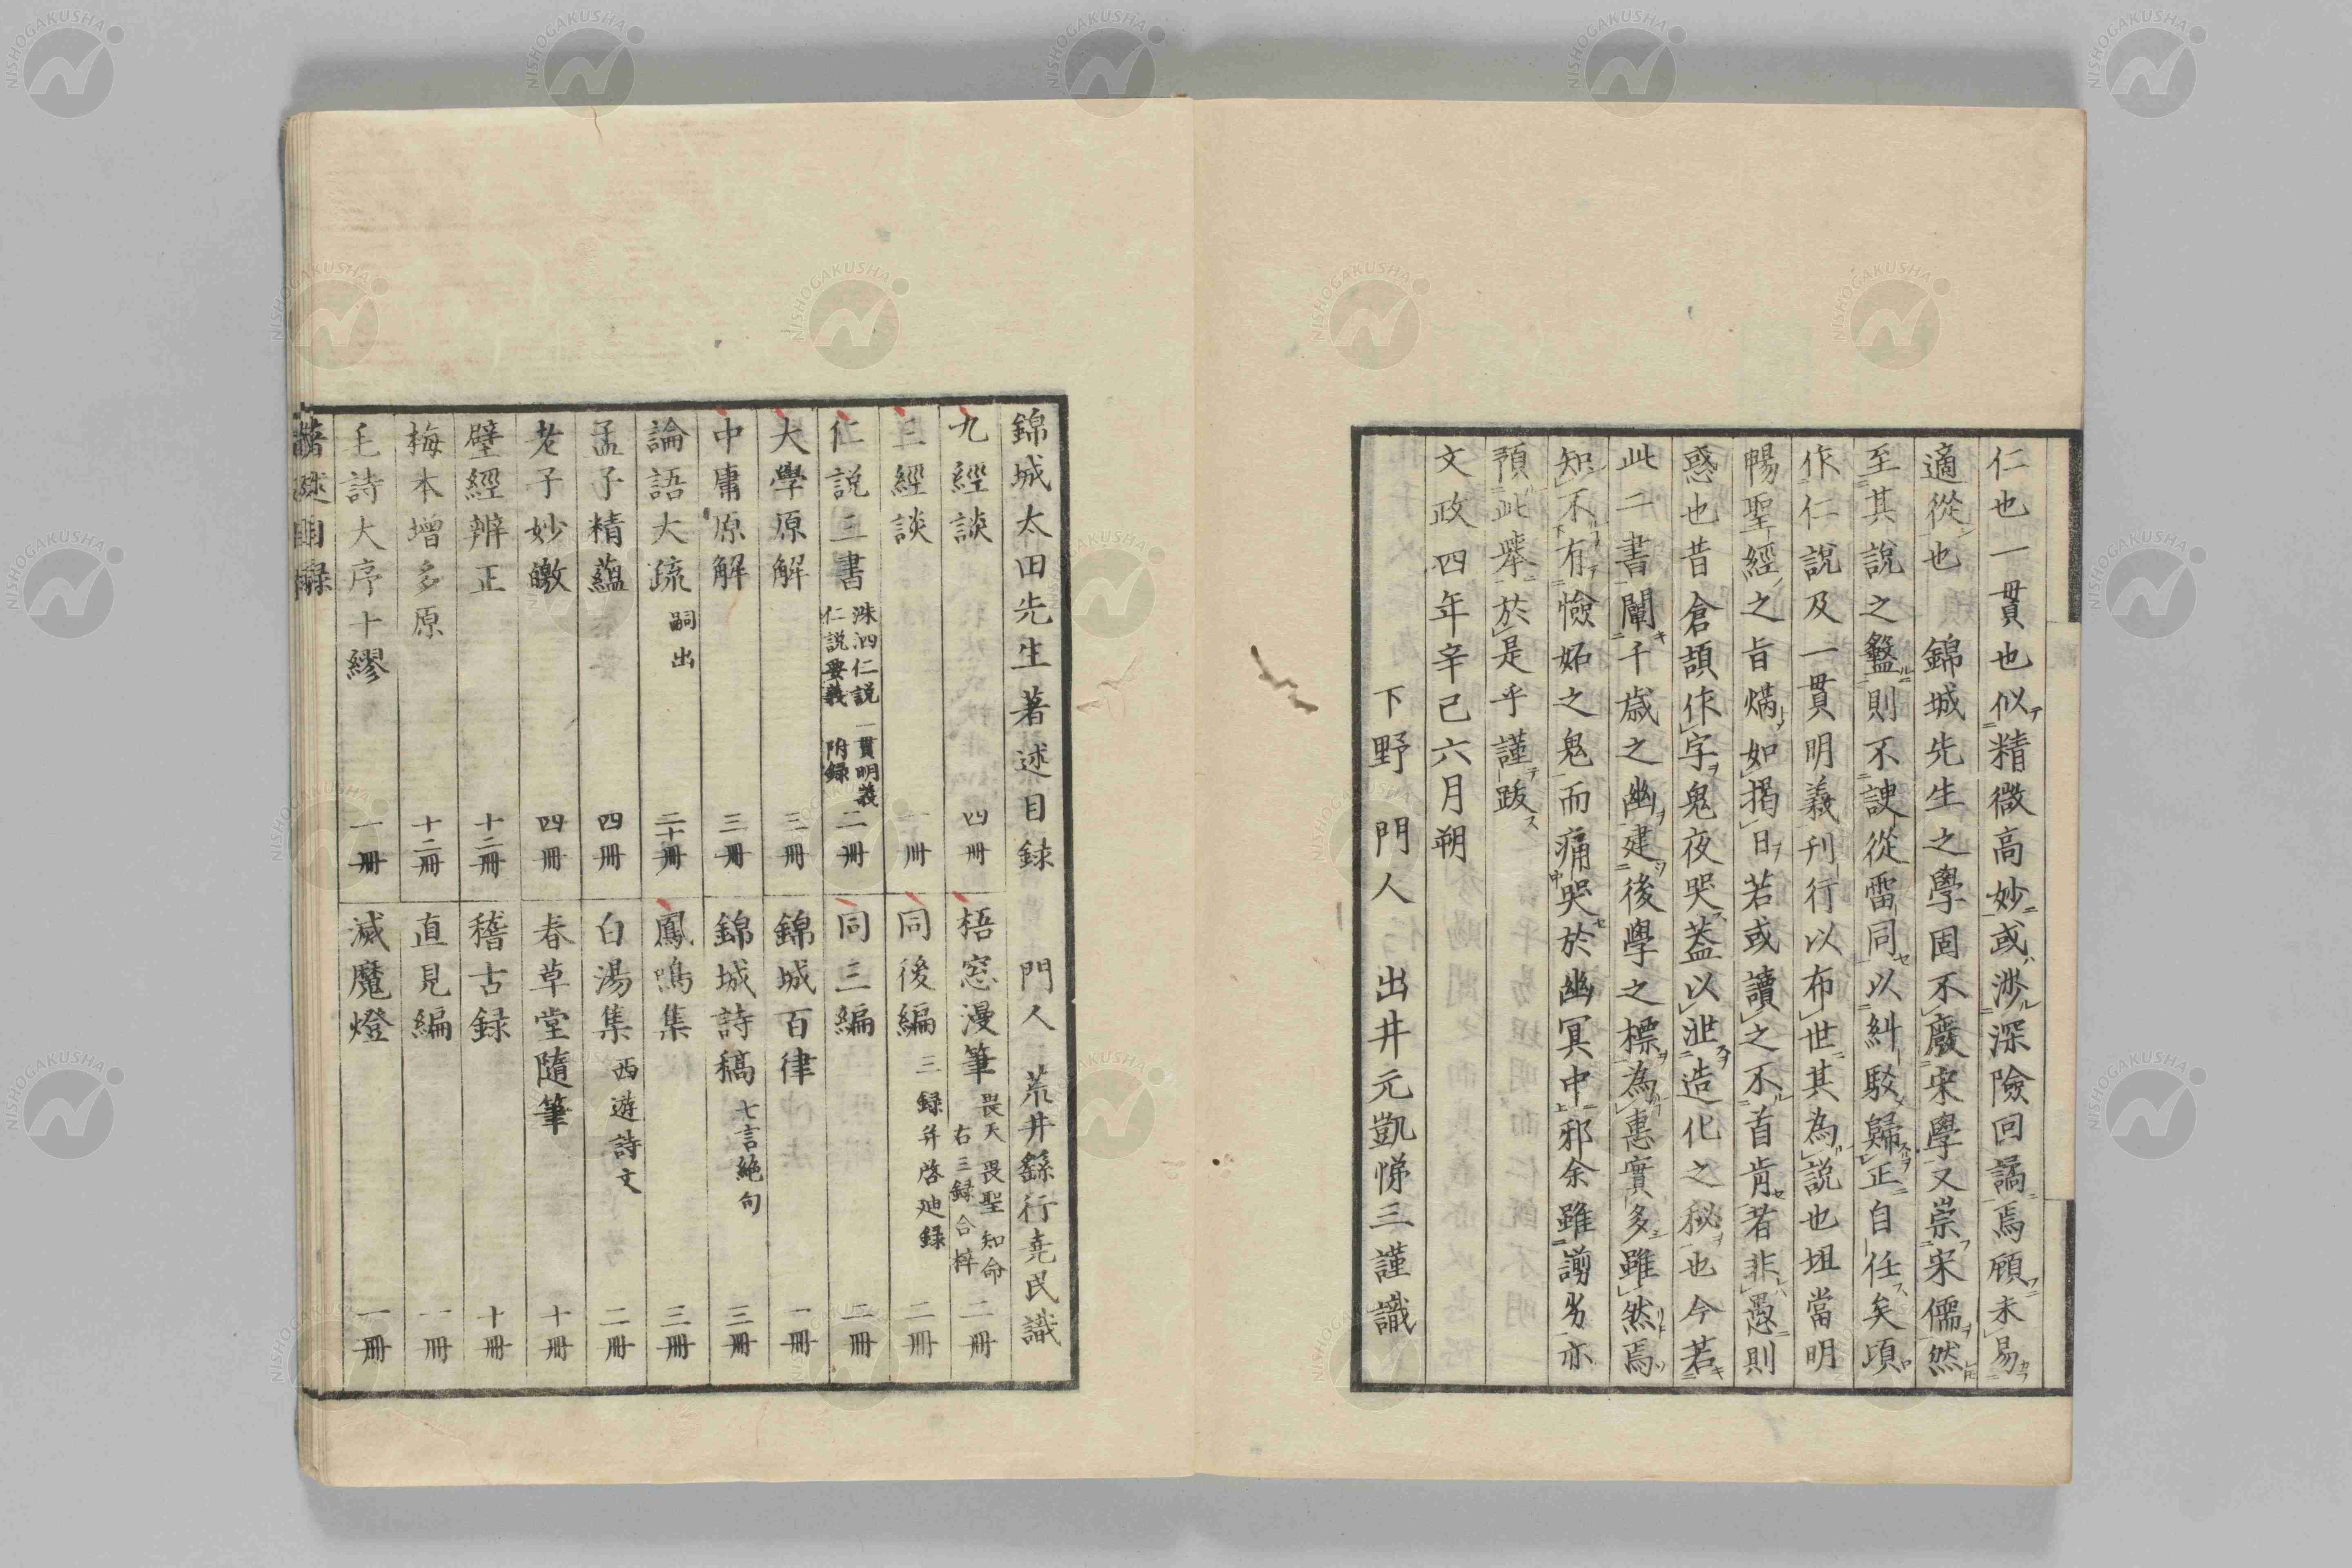 仁也一貫也似精微高妙或渉深險回譎焉顧未易
適從也　錦城先生之學固不廢宋學又崇宋儒然
至其說之盭則不諛從雷同以糾駁歸正自任矣頃
作仁說及一貫明義刊行以布世其為說也坦當明
暢聖經之旨煥如揭日若或讀之不首肯若非愚則
惑也昔倉頡作字鬼夜哭蓋以泄造化之秘也今若
此二書闡千歳之幽建後學之標為惠實多雖然焉
知不有憸妬之鬼而痛哭於幽冥中邪余雖謭劣亦
預此擧於是乎謹跋
文政四年辛巳六月朔
下野門人　出井元凱悌三謹識
錦城太田先生著述目録　門人荒井繇行尭民識
九經談　四冊
三經談　一冊
仁説三書　洙泗仁説　一貫明義　仁説要義　附録　二冊
大學原解　三冊
中庸原解　三冊
論語大疏　嗣出　二十冊
孟子精蘊　四冊
老子妙皦　四冊
壁經辨正　十二冊
梅本增多原　十二冊
毛詩大序十繆　一冊
梧窓漫筆　畏天　畏聖　知命　右三録合梓　二冊
同後編　三録并啓廸録　二冊
同三編　二冊
錦城百律　一冊
錦城詩稿　七言絶句　三冊
鳳鳴集　三冊
白湯集　西遊詩文　二冊
春草堂隨筆　十冊
稽古録　十冊
直見編　一冊
滅魔燈　一冊
NISHOGAKUSHA